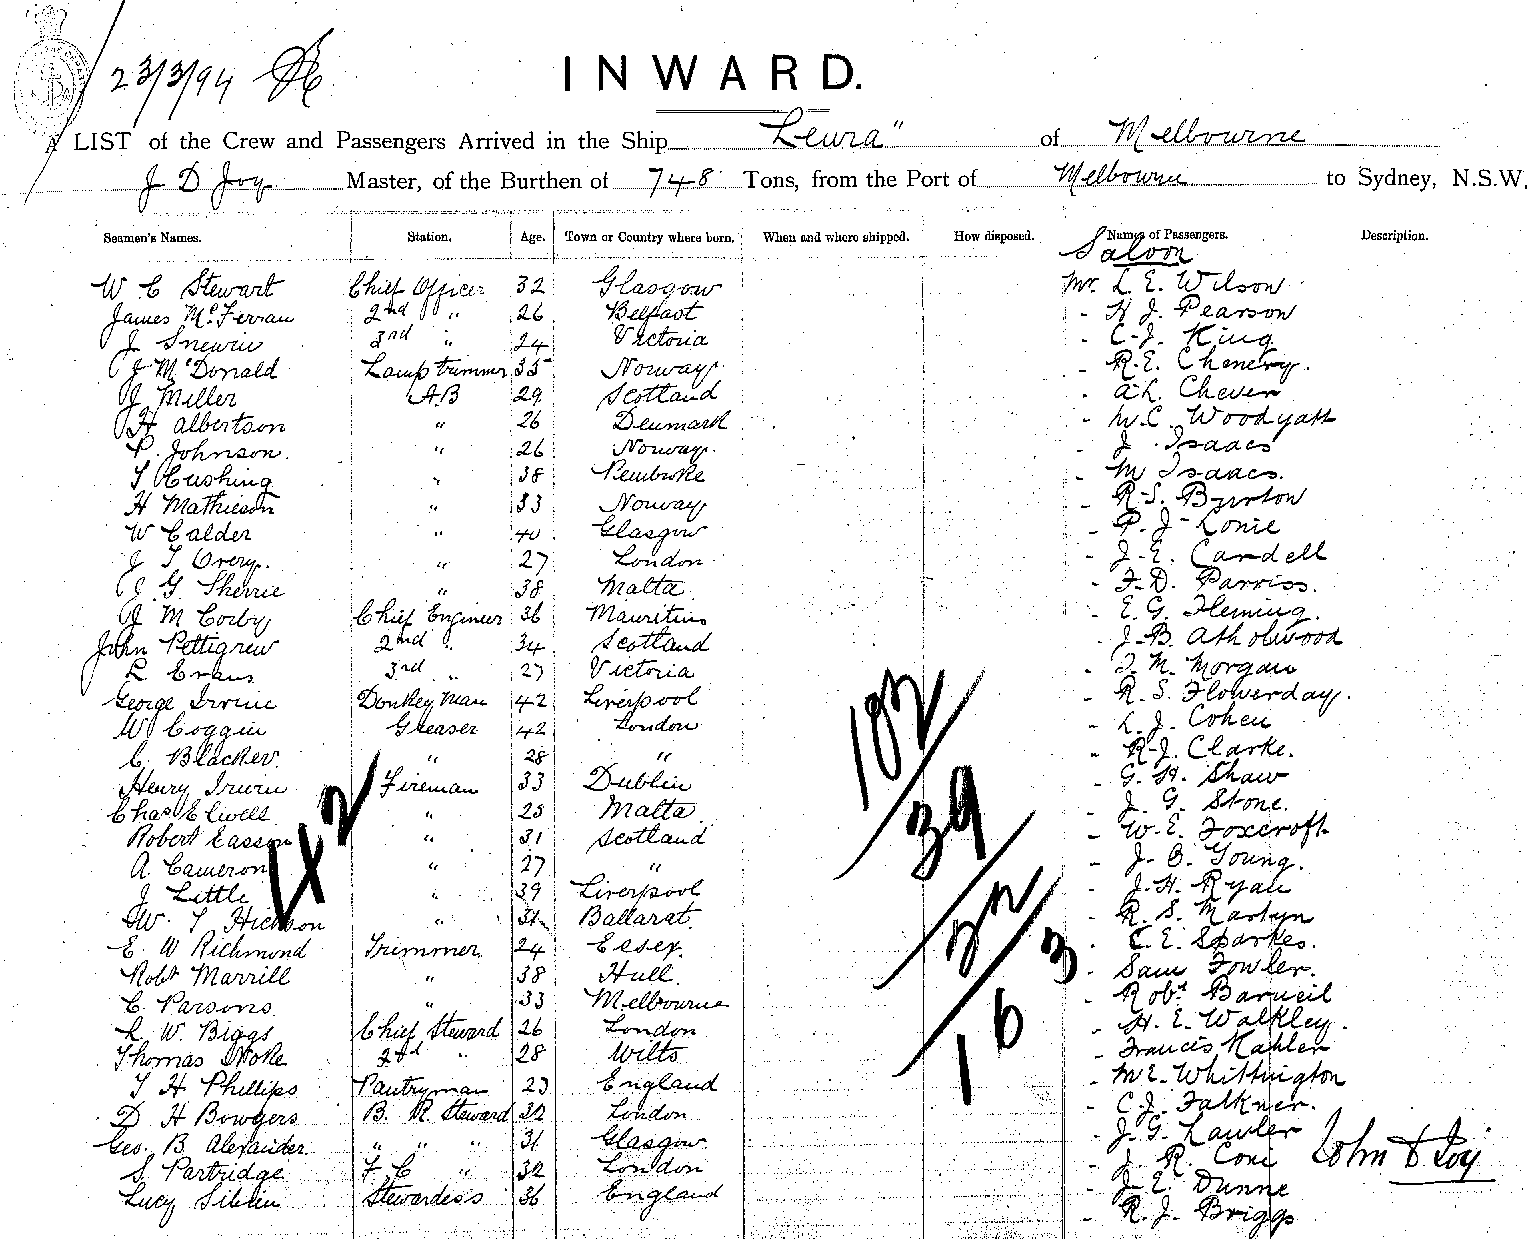 23/3/94
INWARD.
A LIST of the Crew and Passengers Arrived in the Ship "Leura" of Melbourne
J D Joy Master, of the Burthen of 748 Tons, from the Port of Melbourne to Sydney, N.S.W.
Seamen's Names. Station. Age. Town or Country where born. When and where shipped. How disposed. Names of Passengers. Description.
Saloon
W C Stewart Chief Officer 32 Glasgow Mr. L. E. Wilson
James McFerran 2nd " 26 Belfast - H J. Pearson
J 3rd " 24 Victoria - C. J. King
J McDonald Lamptrimmer 35 Norway - R. E. Chenery.
J Miller AB 29 Scotland - A. L. Chever
H Albertson " 26 Denmark - W. C. Woodyatt
P. Johnson. " 26 Norway. - J Isaacs
T Cushing " 38 Pembroke - M Isaacs.
H Mathieson " 33 Norway - R. S. Byrton
W Calder " 40 Glasgow - P. J. Lonie
J T Overy. " 27 London - J. E. Cardell
J G. Sherrie " 38 Malta - F. D. Parriss.
J M Corby Chief Engineer 36 Mauritius - E. G. Fleming.
John Pettigrew 2nd " 34 Scotland - J. B. Atholwood
L Evans 3rd " 27 Victoria - T. M. Morgan
George Irvine Donkeyman 42 Liverpool - R. S. Flowerday.
W Coggin Greaser 42 London - L. J. Cohen
C. Blacker. " 28 " - R. J. Clarke.
Henry Irwin Fireman 33 Dublin - G. H. Shaw
Chas Elwell " 25 Malta - J. G. Stone.
Robert Easson " 31 Scotland - W. E. Foxcroft
A. Cameron " 27 " - J. O. Young.
J Little " 39 Liverpool - J. H. Ryan
W. T Hickson " 31 Ballarat. - R. S. Martyn
E W Richmond Trimmer 24 Essex. - C. E. Sparkes.
Robt Marrill " 38 Hull. - Sam Fowler.
C. Parsons " 33 Melbourne - Robt. Barueil
L W. Biggs Chief Steward 26 London - H. E. Walkley.
Thomas 2nd " 28 Wilts - Francis Mahler
T H Phillips Pantryman 23 England - M E. Whittington
D H Bowgers B. R. Steward 32 London - C. J. Falkner.
Geo. B Alexander " " " 31 Glasgow - J. G. Lawler
S. Partridge F C " 32 London - J. R. Coni
Lucy Stewardess 36 England - J. E. Dunne
- R. J. Briggs
42
102
39
22
163
John D Joy